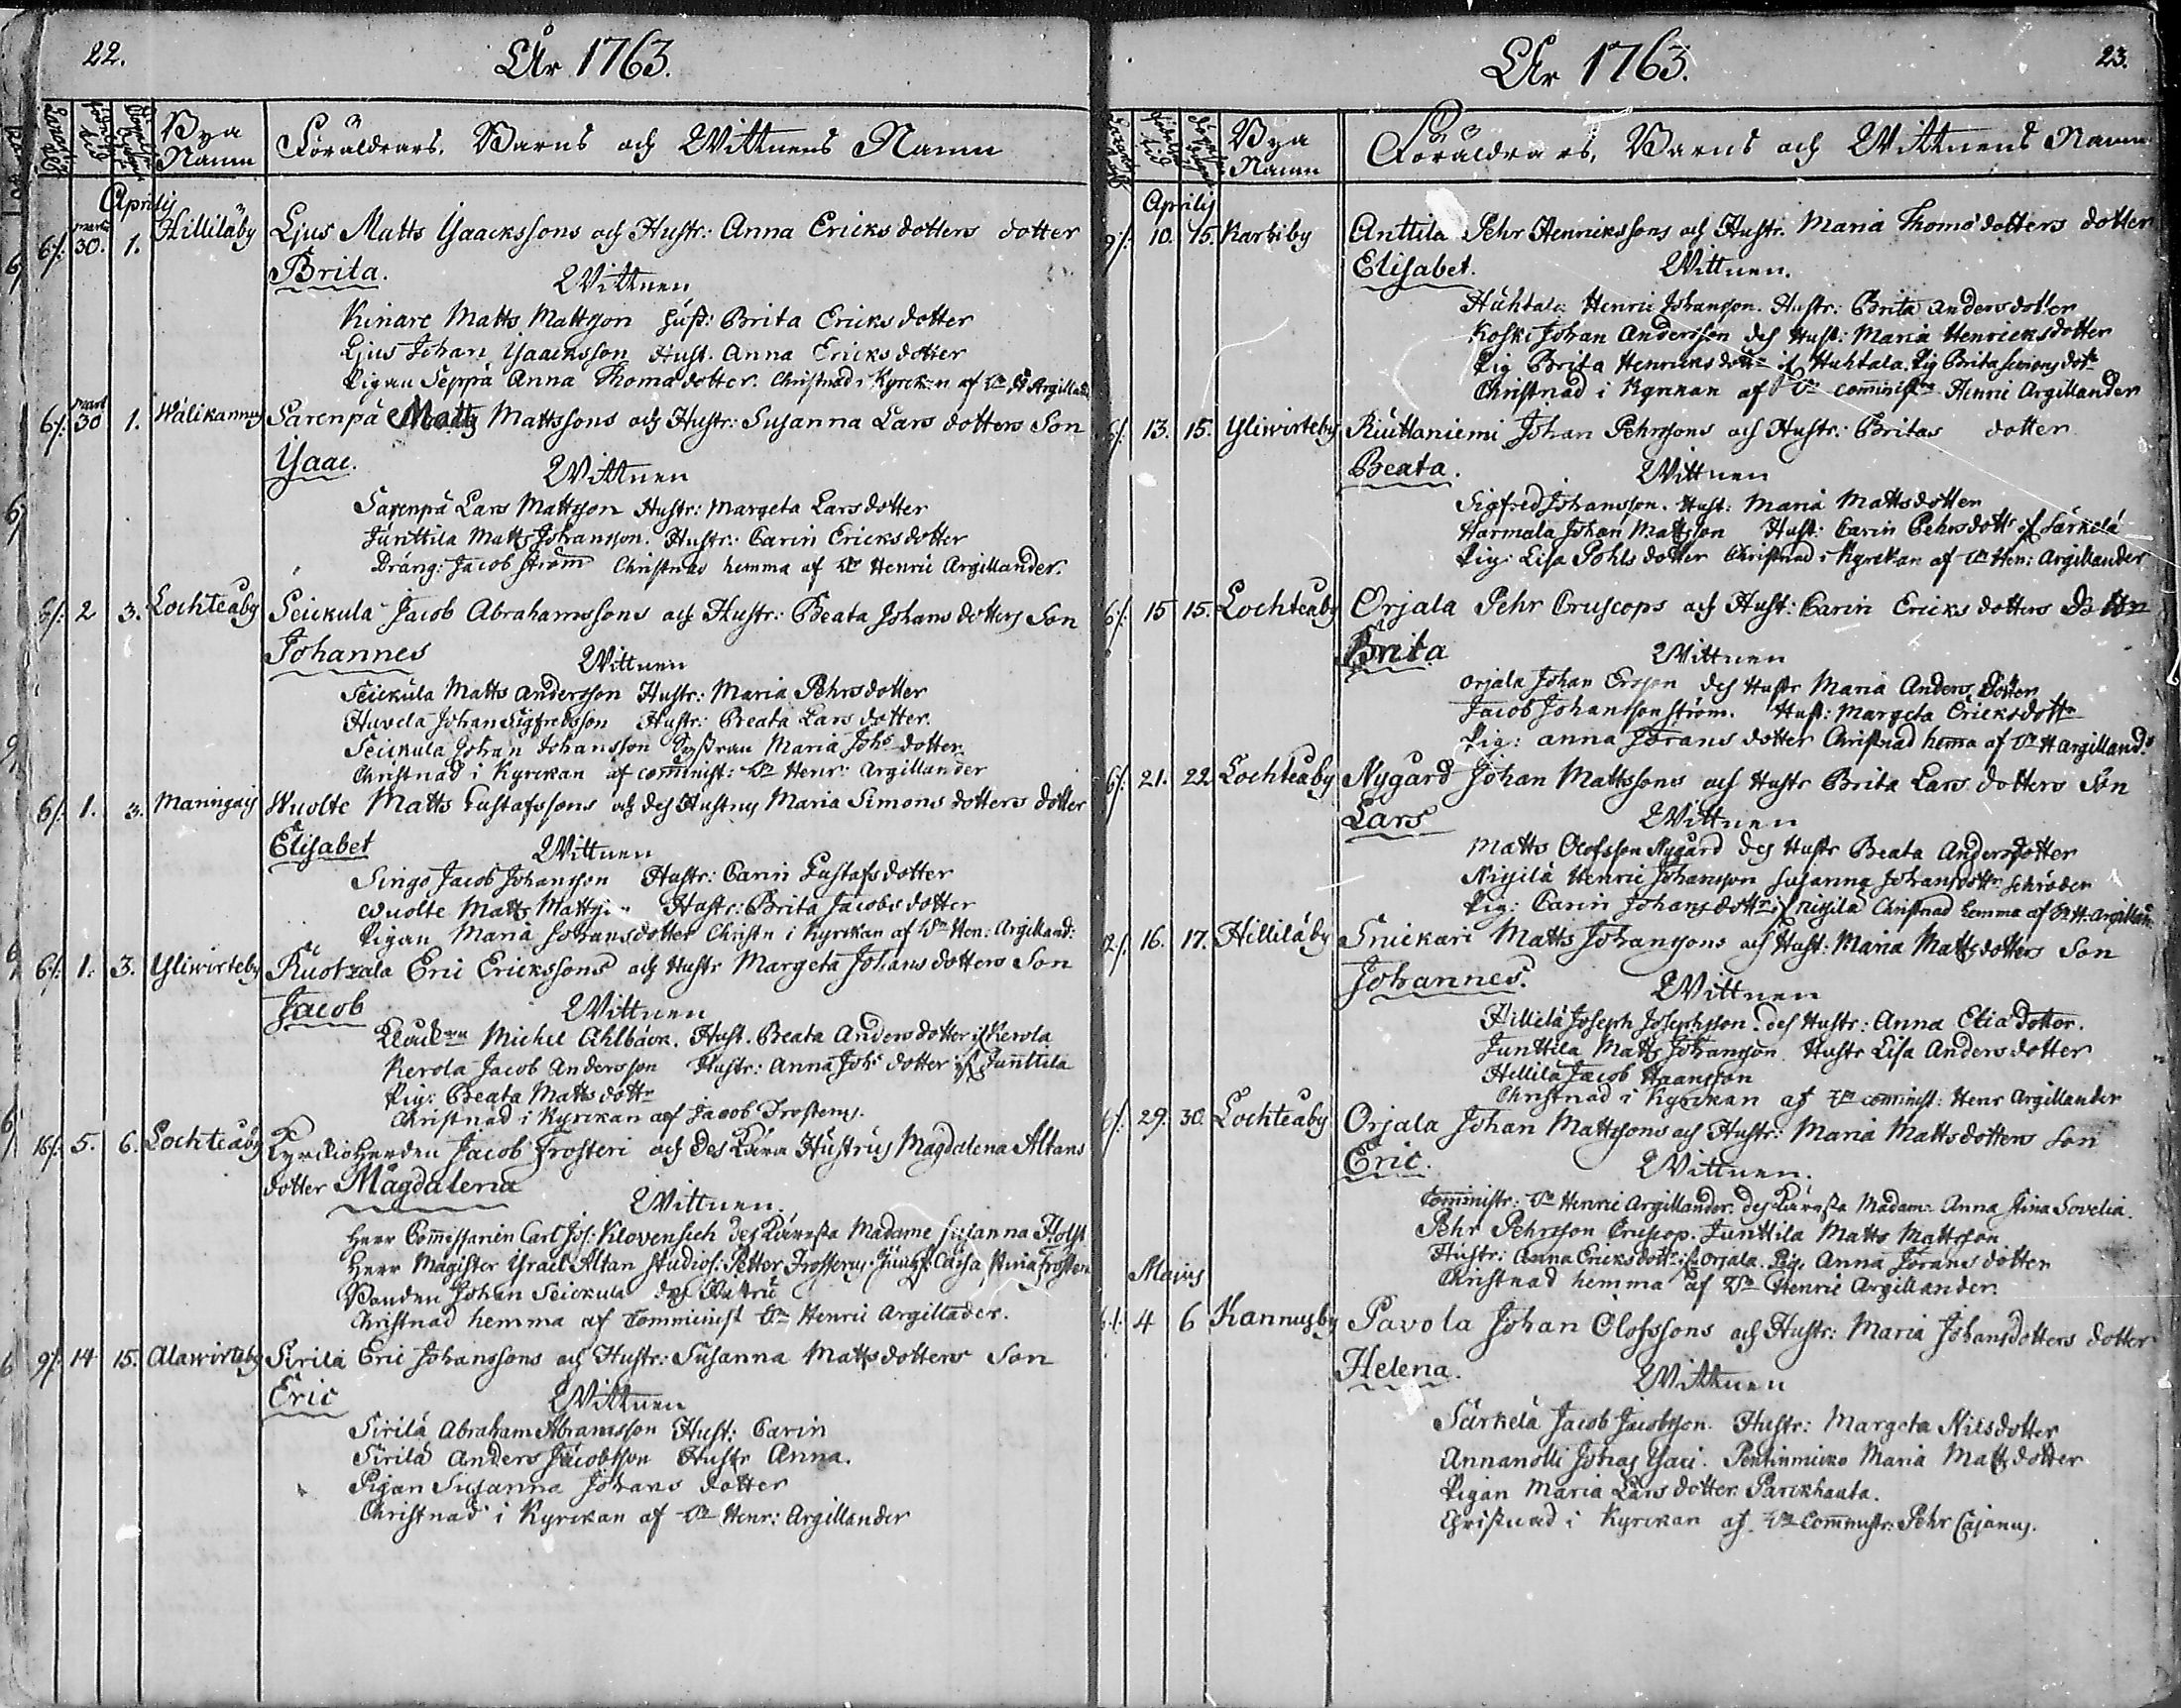 22.
År 1763.
Bya
Namn
Föräldrars, Barns och Wittnens Namn
Aprilij
6/. Martii 30. 1. Hillilåby Ljus Matts Ysaackssons och Hustr: Anna Ericks dotters dotter
Brita. Wittnen
Kinare Matts Mattsson Hust: Brita Ericks dotter
Ljus Johan Ysaacksson Hust. Anna Ericks dotter
Pigan Seppä Anna Thomæ dotter. Christnad i Kyrckan af Vm H Argilland
6/. Mart 30 1. Wälikannus Sarenpä Matts Mattssons och Hustr: Susanna Lars dotters Son
Ysaac. Wittnen
Sarenpä Lars Mattsson Hustr: Margeta Larsdotter
Junttila Matts Johansson. Hustr: Carin Ericksdotter
Dräng: Jacob ström Christnad hemma af Vm Henric Argillander.
6/. 2 3. Lochteåby Seickula Jacob Abrahamssons och Hustr: Beata Johans dotters Son
Johannes Wittnen
Seickula Matts Andersson Hustr: Maria Pehrsdotter
Huvela Johan Sigfredsson Hustr: Beata Lars dotter.
Seickula Johan Johansson Maria Johs dotter
Christnad i Kyrckan af comminist: Vm Henr: Argillander
6/. 1. 3. Maningais Wuolte Matts Gustafssons och des Hustrus Maria Simons dotters dotter
Elisabet Wittnen
Singo Jacob Johansson Hustr: Carin Gustafsdotter
Wuolte Matts Mattsson Hustr: Brita Jacobsdotter
Pigan Maria Johansdotter Christn i Kyrckan af Vm Hen: Argilland:
6/. 1. 3. Yliwirteby Ruotzala Eric Erickssons och Hustr Margeta Johans dotters Son
Jacob Wittnen
Michel Ahlbäck. Hust. Beata Anders dotter if Kerola
Kerola Jacob Andersson Hustr: Anna Johs dotter if Junttila
Pig: Beata Matts dottr
Christnad i Kyrckan af Jacob Frosterus.
18/. 5. 6. Lochteåby Kyrckioherden Jacob Frosteri och des Kära Hustrus Magdalena Altans
dotter Magdalena Wittnen.
Herr Commissarien Carl Joh: Klovensich des Käresta Madame Susanna Holst
Herr Magister Ysrael Altan Studios: Petter Frosterus. Jungf. Caisa Stina Frosteru
Bonden Johan Seickula des Hustru
Christnad hemma af Comminist Vm Henric Argillader.
9/. 14 15. Alawirteby Sirilä Eric Johanssons och Hustr: Susanna Mattsdotters Son
Eric Wittnen
Sirilä Abraham Abramsson Hust: Carin
Sirilä Anders Jacobsson Hustr Anna.
Pigan Susanna Johans dotter
Christnad i Kyrckan af Vm Henr: Argillander
År 1763.
23.
Bya
Namn
Föräldrars, Barns och Wittnens Namn
Aprilij
9/. 10. 15. Karhiby Anttila Pehr Henrickssons och Hustr. Maria Thomæ dotters dotter
Elisabet. Wittnen.
Huhtala Henric Johansson. Hustr: Brita Andersdotter
Koski Johan Andersson des Hust: Maria Henricksdotter
Pig Brita Henricksdotr if Huhtala. Pig Brita Simonsdotr
Christnad i Kyrckan af Vm comministrn Henric Argillander
6/. 13. 15. Yliwirteby Riuttaniemi Johan Pehrssons och Hustr: Britas dotter
Beata. Wittnen
Sigfred Johansson. Hust: Maria Mattsdotter
Harmala Johan Mattsson Hust: Carin Pehrsdottr if Särkelä
Pig: Lisa Pohls dotter Christnad i Kyrckan af Vm Hen: Argillander
6/. 15 15. Lochteåby Orjala Pehr Cruscops och Hust: Carin Ericks dotters Dotter
Brita Wittnen
Orjala Johan Ersson des Hustr Maria Anders dotter
Jacob Johansson ström. Hust: Margeta Ericksdottr
Pig: Anna Jörans dotter Christnad hema af Vm H Argilland:
6/. 21. 22 Lochteåby Nygård Johan Mattssons och Hustr Brita Lars dotters Son
Lars Wittnen
Matts Olofsson Nygård des Hustr Beata Andersdotter
Nisilä Henric Johansson Susanna Johansdottr Schröder
Pig: Carin Johans dottr if Nisilä Christnad hemma af Vm H. Argillan:
12/. 16. 17. Hillilåby Snickari Matts Johanssons och Hust: Maria Mattsdotters Son
Johannes. Wittnen
Hillilä Joseph Josephsson. des Hustr: Anna Elia dotter.
Junttila Matts Johansson Hustr Lisa Andersdotter
Hillilä Jacob Haansson
Christnad i Kyrckan af Vm comminist: Henr Argillander
6/. 29. 30. Lochteåby Orjala Johan Mattssons och Hustr: Maria Mattsdotters Son
Eric. Wittnen.
Comministr: Vm Henric Argillander. des Käresta Madam: Anna Stina Sovelia.
Pehr Pehrsson Cruscop. Junttila Matts Mattsson
Hustr: Anna Ericksdottr if Orjala. Pig. Anna Jörans dotter
Christnad hemma af Vm Henric Argillander.
Maius
6/. 4 6 Kannusby Pavola Johan Olofssons och Hustr: Maria Johansdotters dotter
Helena. Wittnen
Särkelä Jacob Jacobsson. Hustr: Margeta Nilsdotter
Annanolli Jonas Ysaci. Pentinmicko Maria Mattsdotter
Pigan Maria Larsdotter Parckhauta.
Christnad i Kyrckan af. Vm Comministr: Pehr Cajanus.